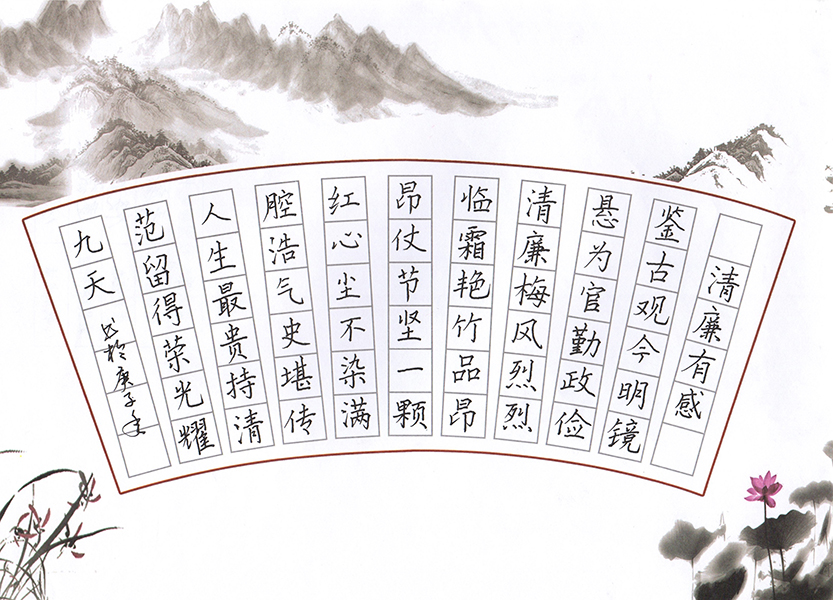 清廉有感
鉴古观今明镜
悬为官勤政俭
清廉梅风烈烈
临霜艳竹品昂
昂仗节坚一颗
红心尘不染满
腔浩气史堪传
人生最贵持清
范留得荣光耀
九天 书于庚子冬